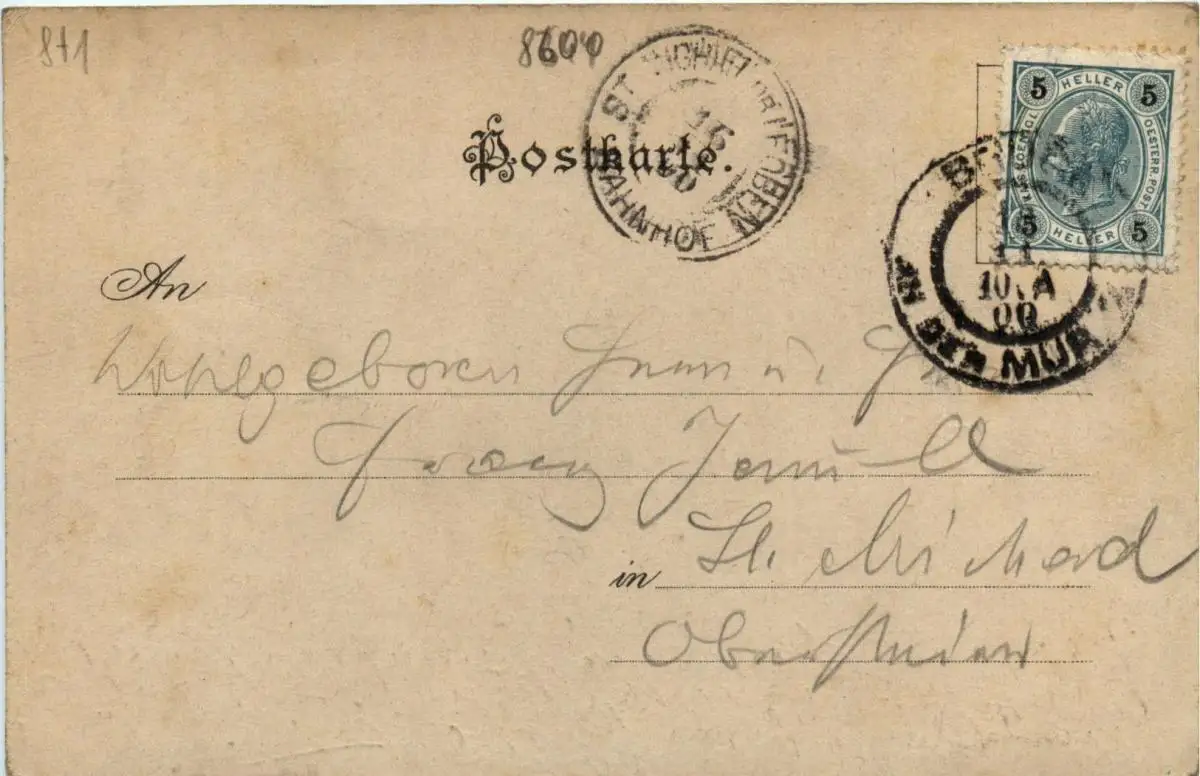 871
8600
ST. MICHAEL OB LEOBEN
15
00
BAHNHOF
5 HELLER 5
KAIS. KOENIGL. OESTERR. POST
5 HELLER 5
BRUCK
11
10. A
00
AN DER MUR
Postkarte.
An
Wohlgeboren Frau u.
Franz
in St. Michael
Obersteier